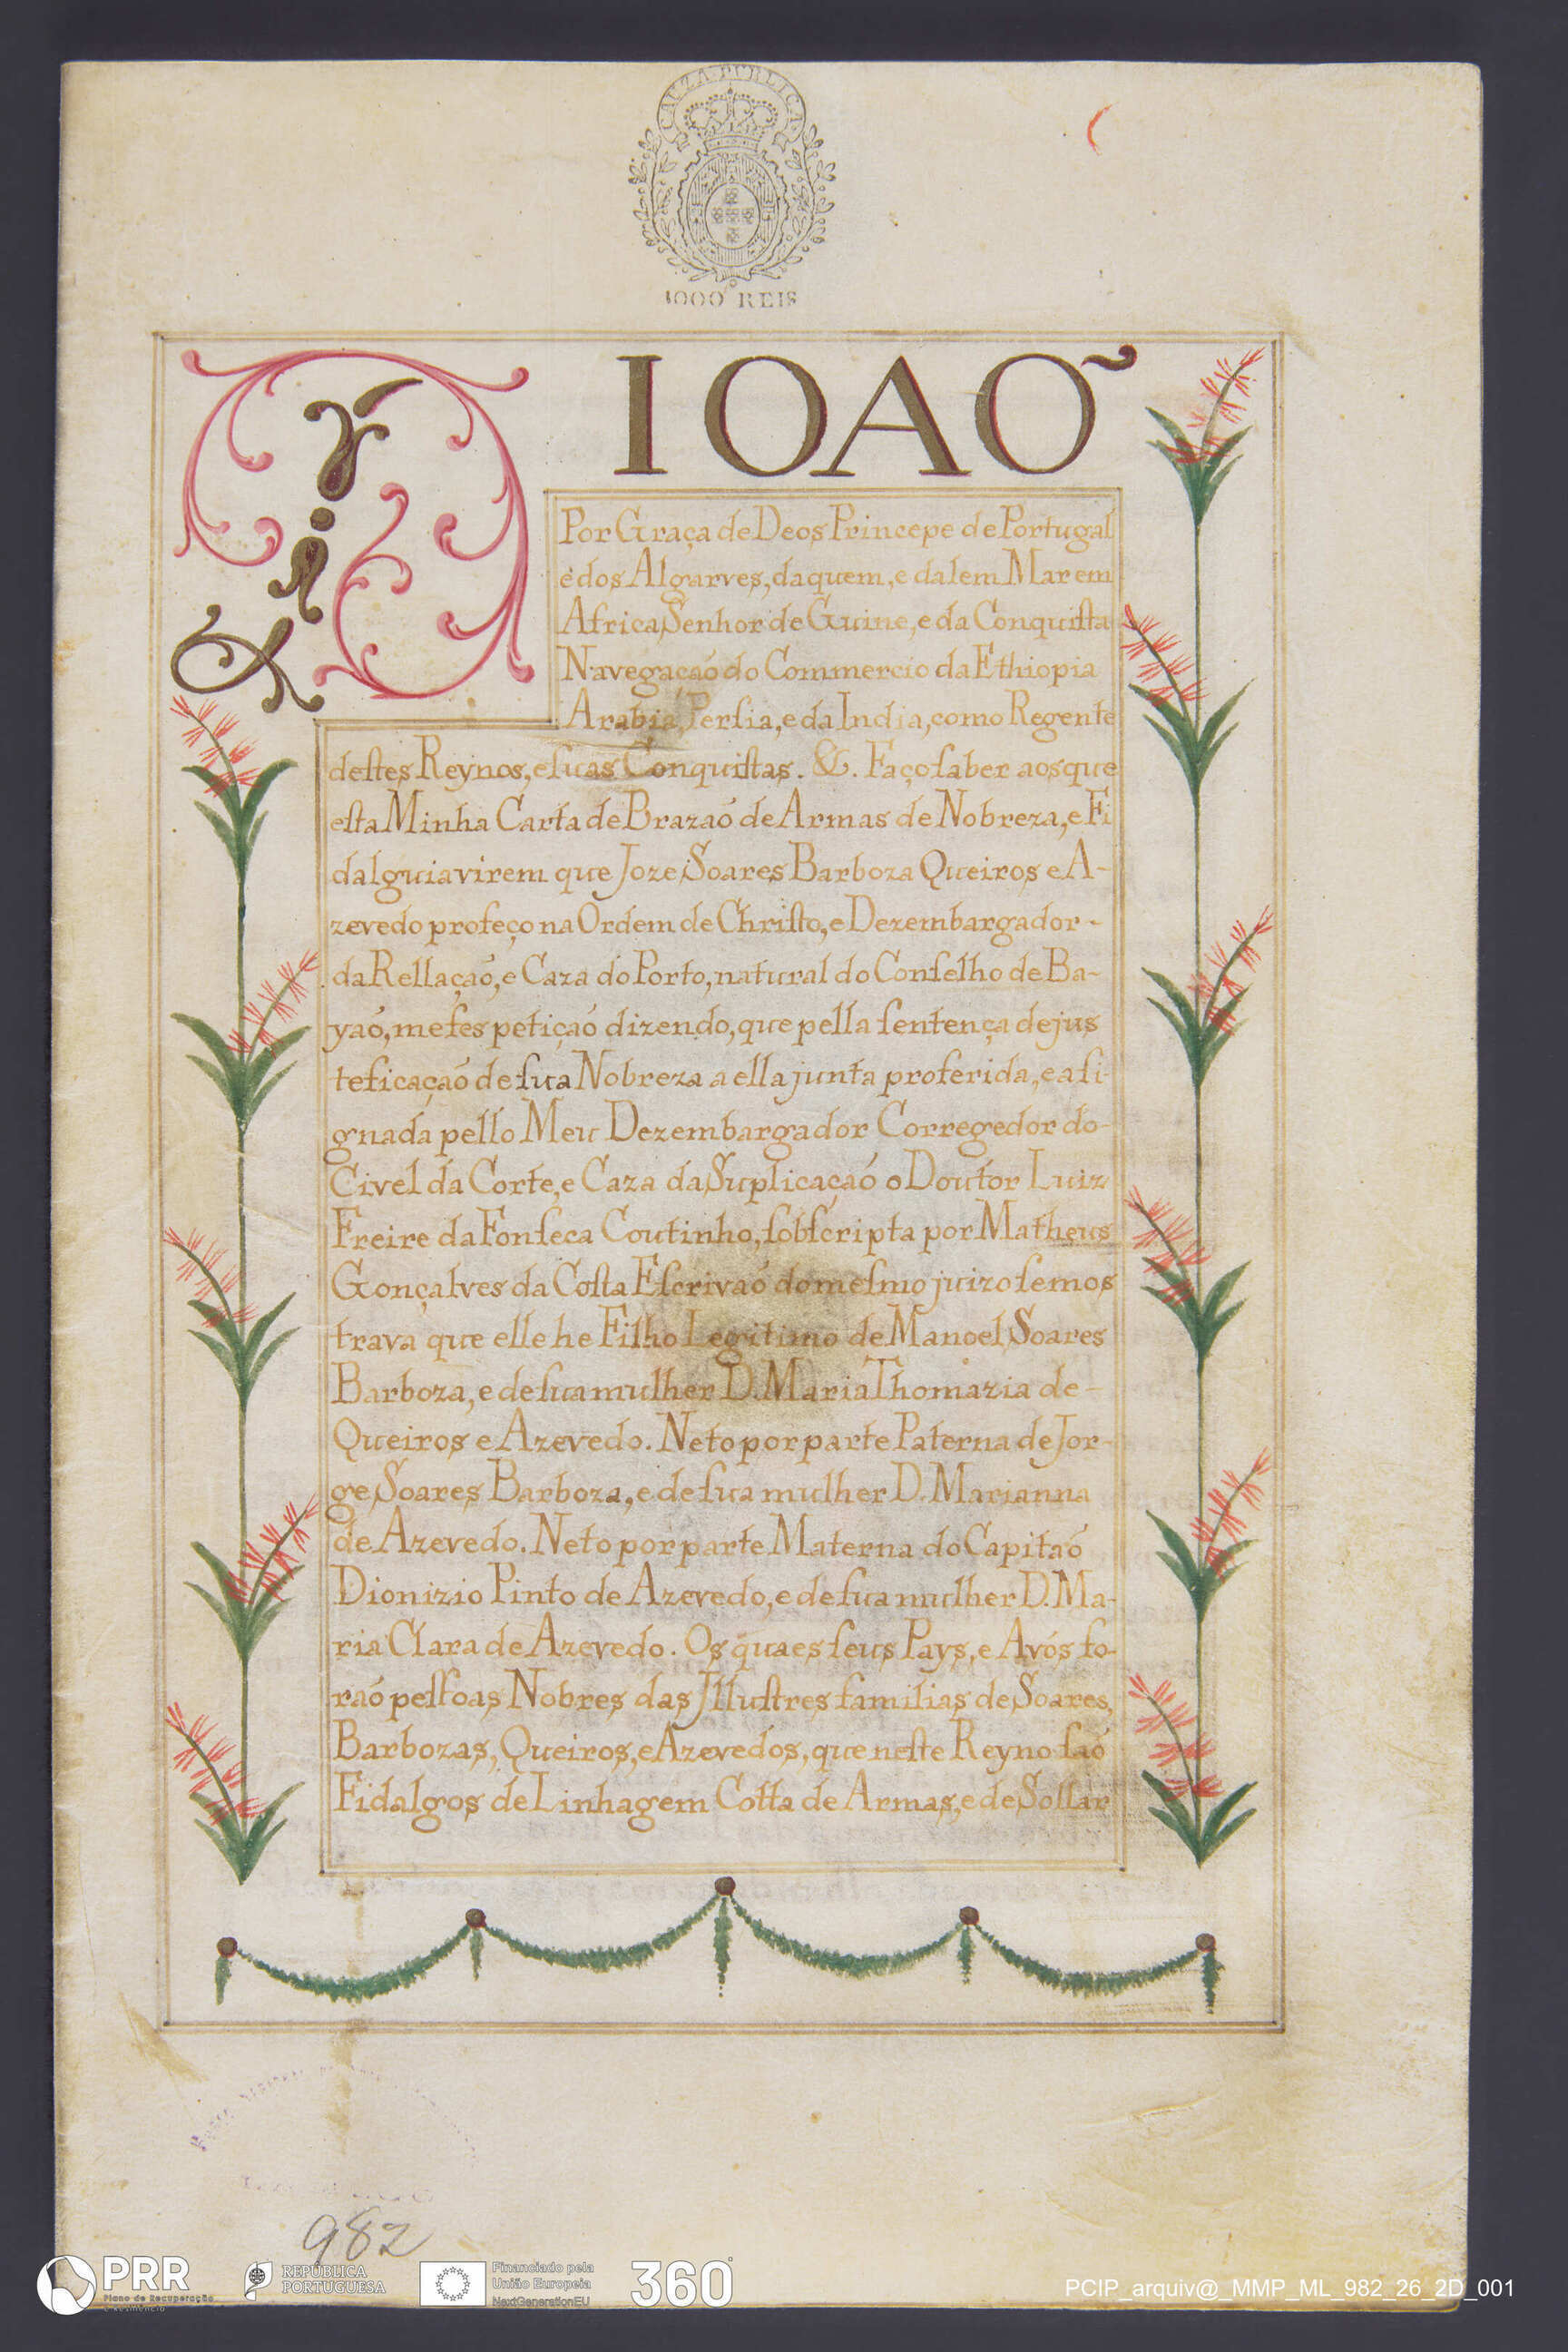 CAUZA PUBLICA
1000 REIS
D IOAÕ
Por Graça de Deos Princepe de Portugal
e dos Algarves, daquem, e dalem Mar em
Africa, Senhor de Guine, e da Conquiſta
Navegaçaó do Commercio da Ethiopia
Arabia, Perſia, e da India, como Regente
deſtes Reynos, e ſuas Conquiſtas. &. Faço ſaber aos que
eſta Minha Carta de Brazaó de Armas de Nobreza, e Fi
dalguia virem que Joze Soares Barboza Queiros e A-
zevedo profeço na Ordem de Chriſto, e Dezembargador -
da Rellaçaó, e Caza do Porto, natural do Conſelho de Ba-
yaó, me fes petiçaó dizendo, que pella ſentença de jus
teficaçaó de ſua Nobreza a ella junta proferida, e aſi-
gnada pello Meu Dezembargador Corregedor do-
Civel da Corte, e Caza da Suplicaçaó o Doutor Luiz
Freire da Fonſeca Coutinho, ſobſcripta por Matheus
Gonçalves da Coſta Eſcrivaó do meſmo juizo ſe mos
trava que elle he Filho Legitimo de Manoel Soares
Barboza, e de ſua mulher D. Maria Thomazia de -
Queiros e Azevedo. Neto por parte Paterna de Jor-
ge Soares Barboza, e de ſua mulher D. Marianna
de Azevedo. Neto por parte Materna do Capitaó
Dionizio Pinto de Azevedo, e de ſua mulher D. Ma-
ria Clara de Azevedo. Os quaes ſeus Pays, e Avós fo-
raó peſſoas Nobres das Illuſtres familias de Soares,
Barbozas, Queiros, e Azevedos, que neſte Reyno ſaó
Fidalgos de Linhagem Cotta de Armas, e de Sollar
982
PRR
Plano de Recuperação
e Resiliência
REPÚBLICA
PORTUGUESA
Financiado pela
União Europeia
NextGenerationEU
360°
PCIP_arquiv@_MMP_ML_982_26_2D_001